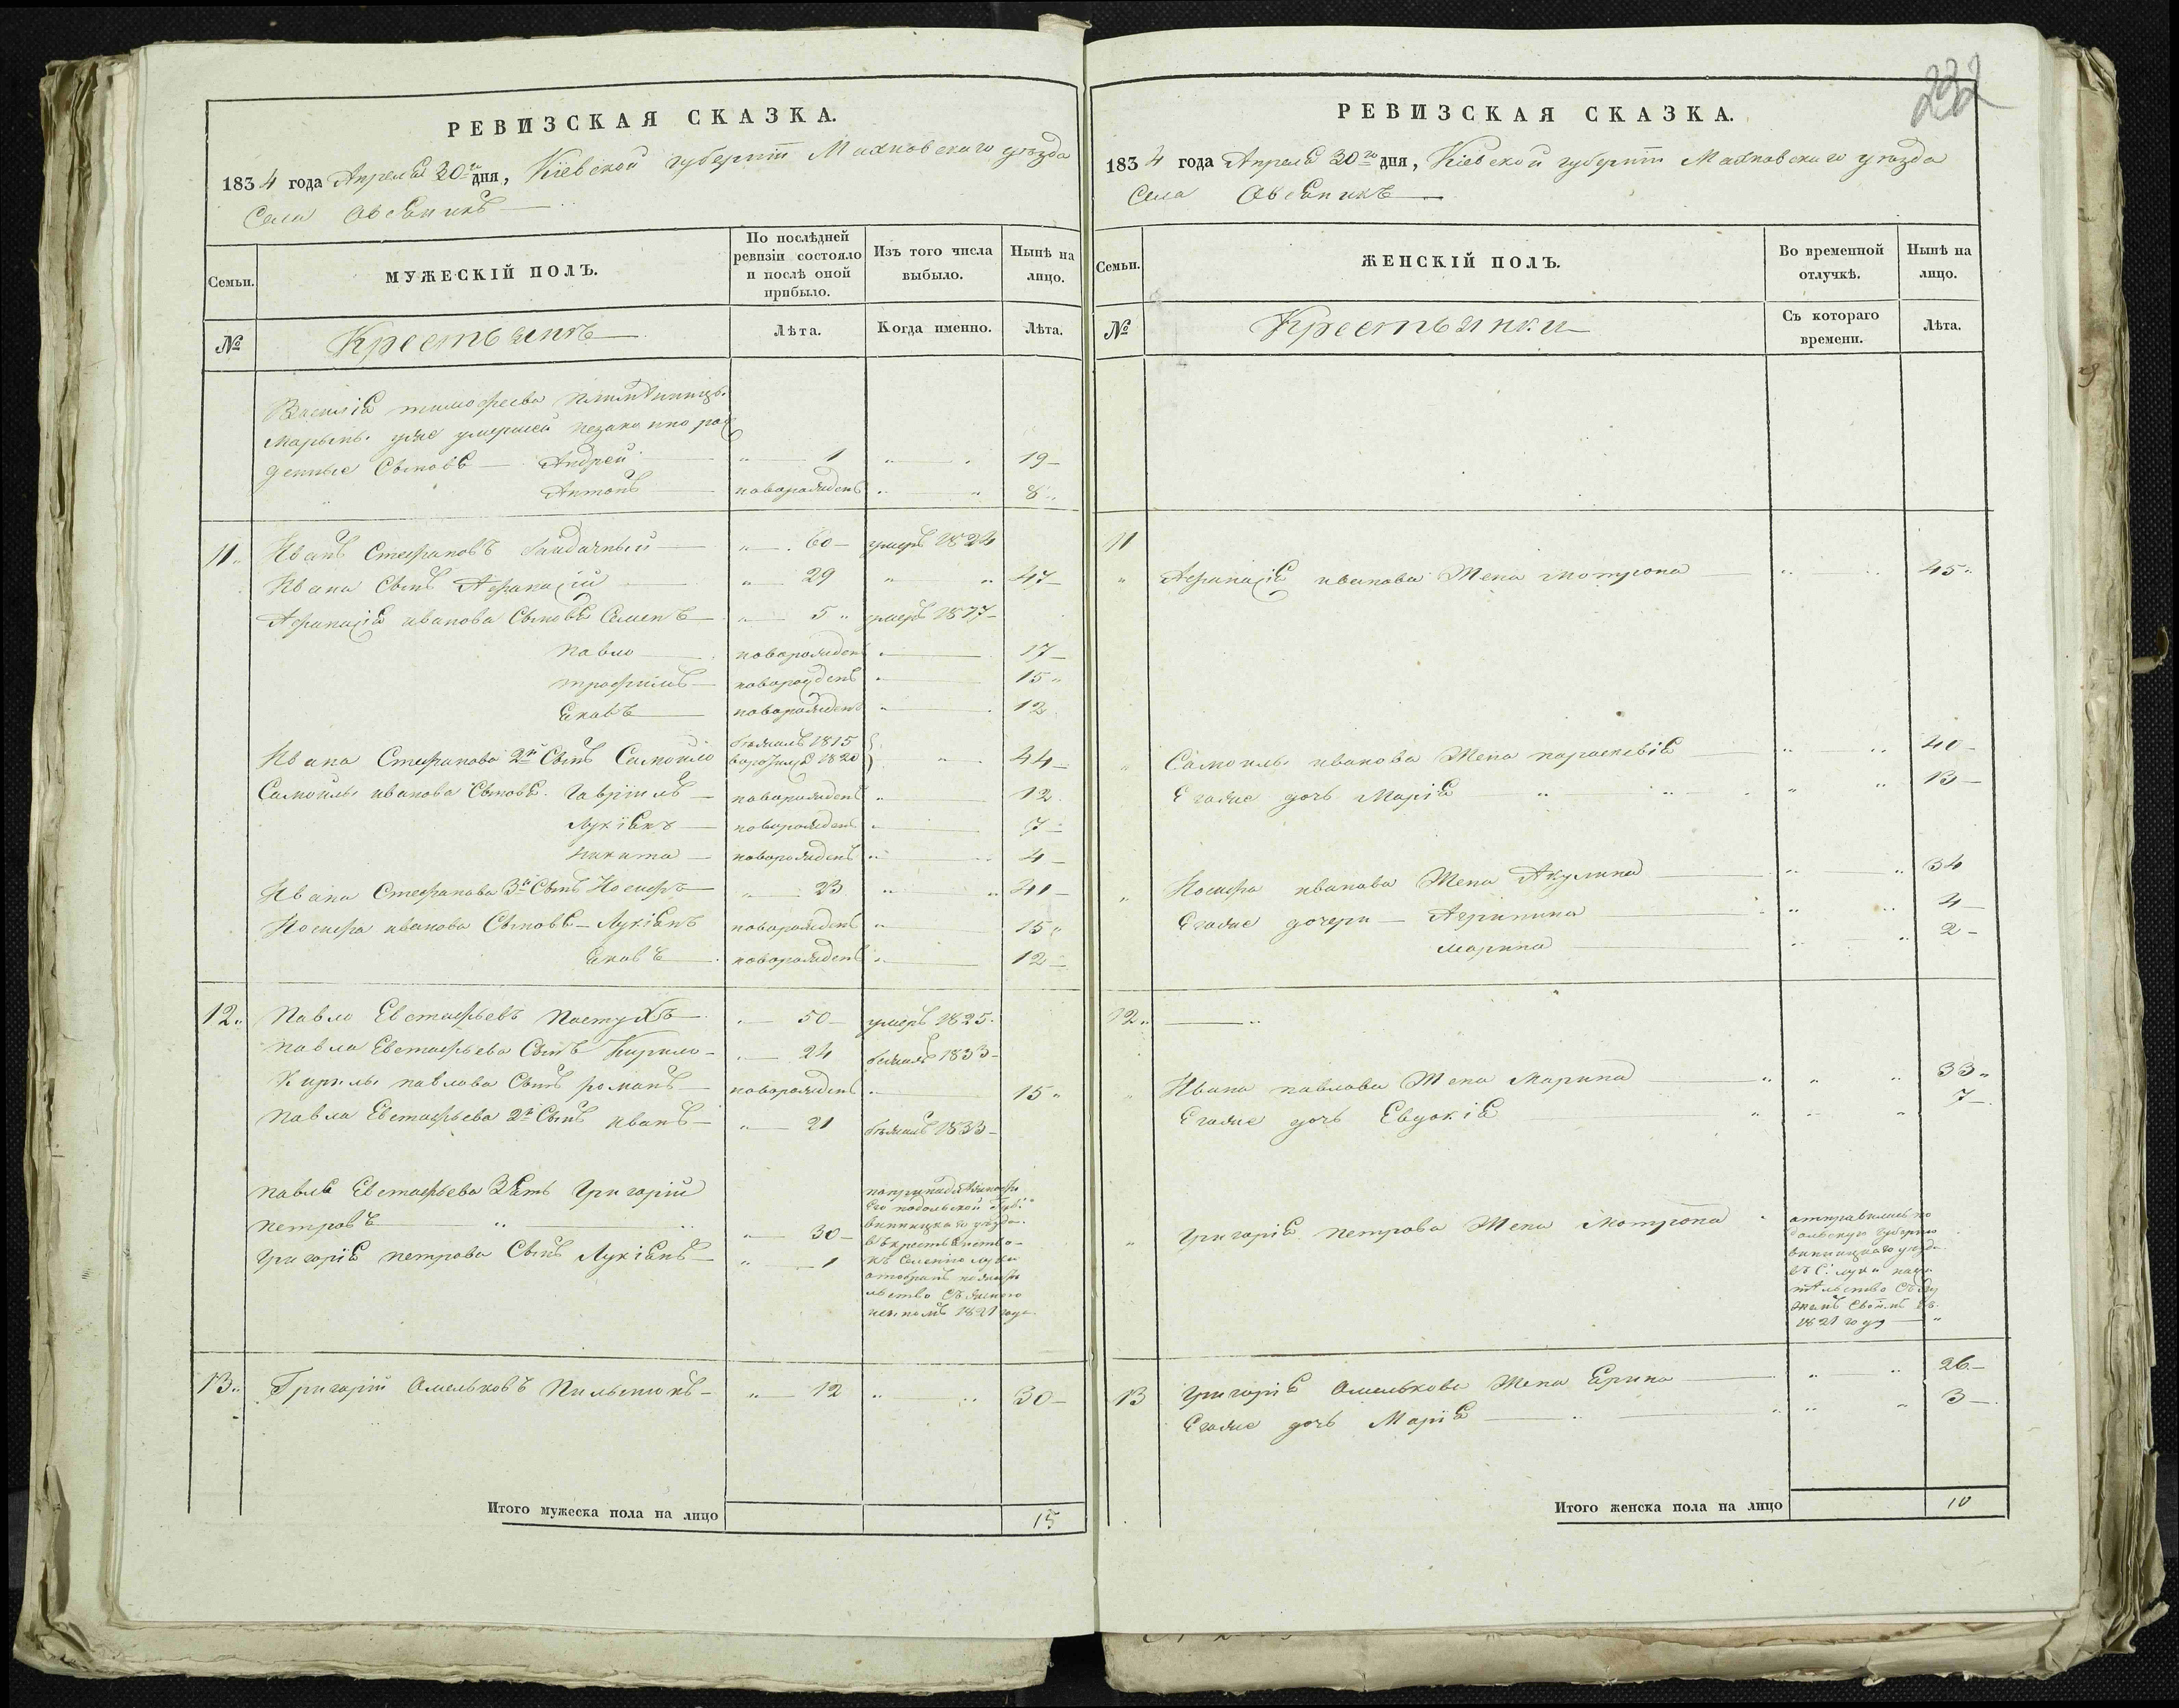 РЕВИЗСКАЯ СКАЗКА.
1834 года Апреля 30го дня, Кіевской губерніи Махновскаго уѣзда
Села Овсяникъ
Семьи.
МУЖЕСКІЙ ПОЛЪ.
По послѣдней ревизіи состояло и послѣ оной прибыло.
Изъ того числа выбыло.
Нынѣ на лицо.
№
Крестьянъ
Лѣта.
Когда именно.
Лѣта.
Василія тимофеева
Марьяны уже умершей незаконно рож
денные Сыновя Андрей 1 19
Антонъ новорожденъ 8
11. Иванъ Стефановъ 60 умеръ 1824
Ивана Сынъ Афанасій 29 47
Афанасія иванова Сыновя Семенъ 5 умеръ 1817
Павло новорожденъ 17
трофимъ новорожденъ 15
Яковъ новорожденъ 12
Ивана Стефанова 2й Сынъ Самойло бѣжалъ 1815 44
Самойлы иванова Сыновя Гавріилъ новорожденъ 12
Лукіянъ новорожденъ 7
никита новорожденъ 4
Ивана Стефанова 3й Сынъ Иосифъ 23 41
Иосифа иванова Сыновя Лукіянъ новорожденъ 15
яковъ новорожденъ 12
12. Павло Евстафьевъ Пастухъ 50 умеръ 1825
Павла Евстафьева Сынъ Кирило 24 бежалъ 1833
Кирилы павлова Сынъ романъ новорожденъ 15
Павла Евстафьева 2й Сынъ иванъ 21 бѣжалъ 1833
Павла Евстафьева Зять Григорій
петровъ 30
Григорія петрова Сынъ Лукіянъ 1
по принадлежности
его подольской губ:
винницкаго уѣзда
въ крестьянство
къ Селенію лука
отобранъ
1821 года
13. Григорій Омельковъ 12 30
Итого мужеска пола на лицо 15
232
РЕВИЗСКАЯ СКАЗКА.
1834 года Апреля 30го дня, Кіевской губерніи Махновскаго уѣзда
Села Овсяникъ
Семьи.
ЖЕНСКІЙ ПОЛЪ.
Во временной отлучкѣ.
Нынѣ на лицо.
№
Крестьянки
Съ котораго времени.
Лѣта.
11
Афанасія иванова Жена мотрона 45
Самоилы иванова Жена параскевія 40
Егоже дочь Марія 13
Иосифа иванова Жена Акулина 34
Егоже дочери Агрипина 4
марина 2
12.
Ивана павлова Жена Марина 33
Егоже дочь Евдокія 7
Григорія петрова Жена Мотрона
отправилась по
дольскую губернію
винницкаго уѣзда
въ С: луки на жи
тельство Съ му
жемъ Своимъ въ
1821 году
13 Григорія Омелькова Жена Ерина 26
Егоже дочь Марія 3
Итого женска пола на лицо 10